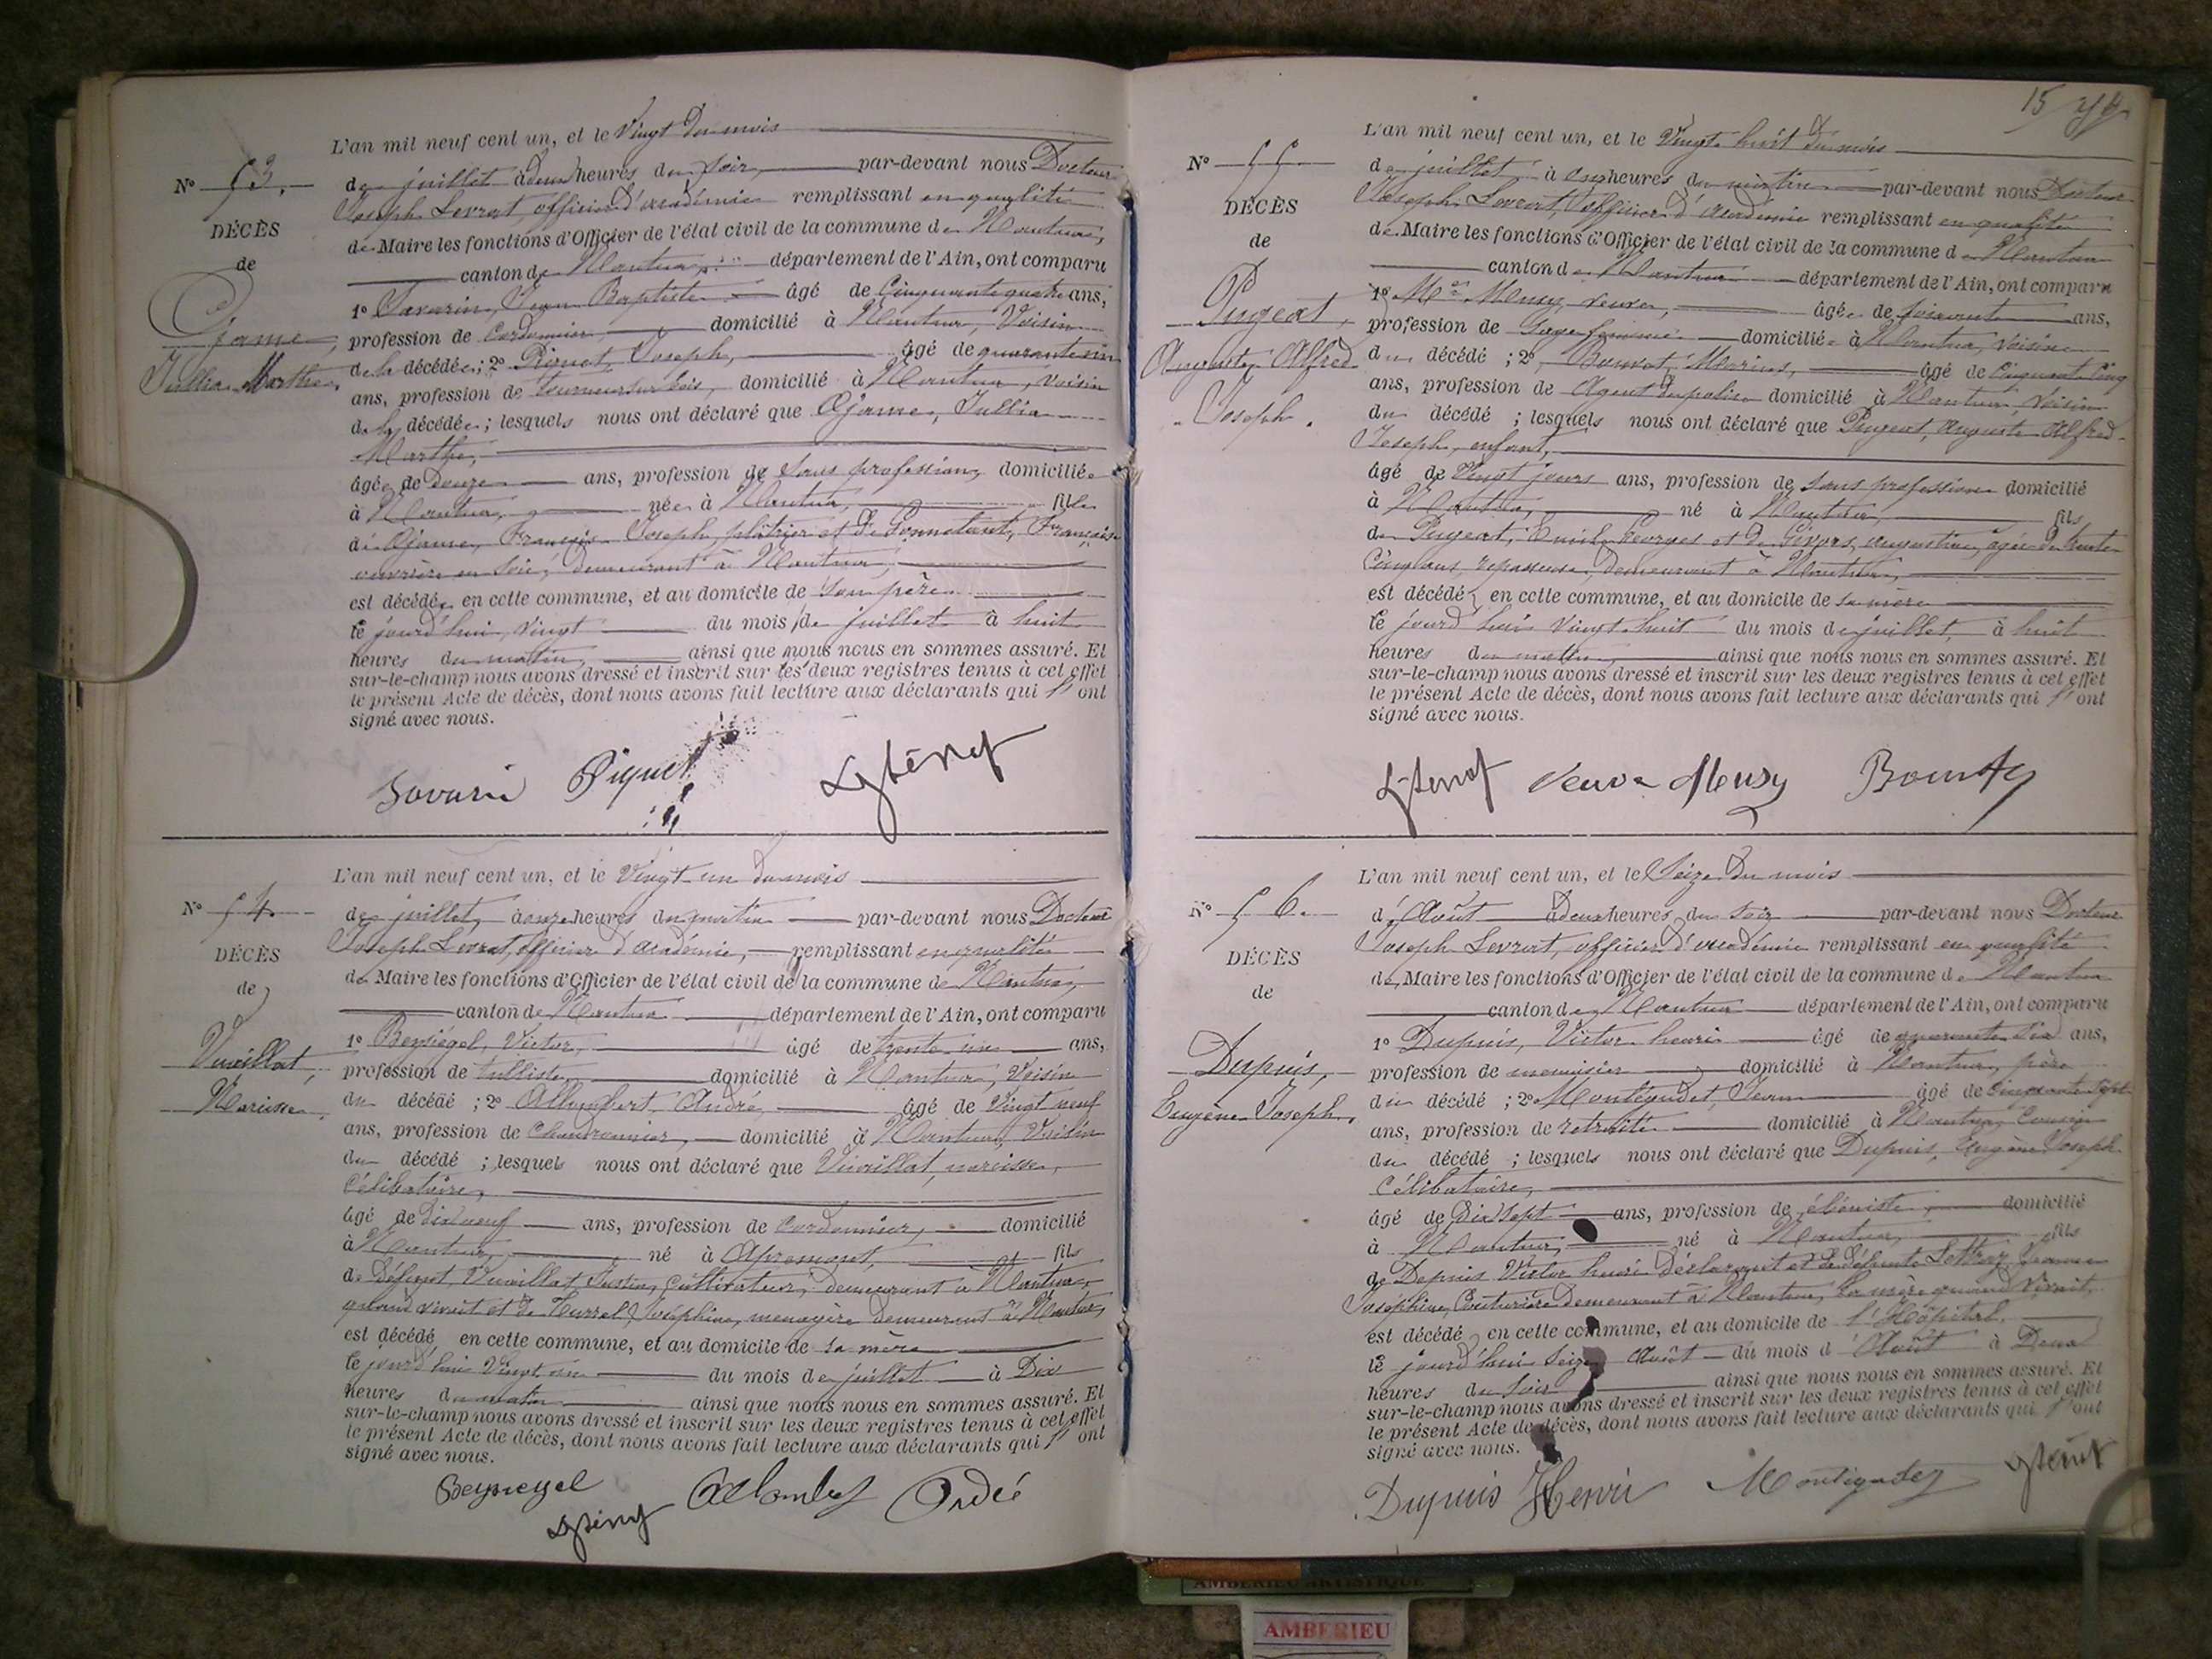 L'an mil neuf cent un, et le Vingt du mois
N° 53.
de juillet à deux heures du soir, par-devant nous Docteur
Joseph Levrat, officier d'académie remplissant en qualité
DÉCÈS
de Maire les fonctions d'Officier de l'état civil de la commune de Nantua,
de
canton de Nantua, département de l'Ain, ont comparu
1° Savarin, Jean Baptiste âgé de Cinquante quatre ans,
profession de Cordonnier, domicilié à Nantua, Voisin
de la décédée; 2° Piquet, Joseph, âgé de quarante
Marthe
ans, profession de tourneur sur bois, domicilié à Nantua, voisin
de la décédée; lesquels nous ont déclaré que
Marthe,
âgée de Douze ans, profession de Sans profession, domiciliée
à Nantua, née à Nantua, fille
de François Joseph, plâtrier et de
ouvrière en Soie, demeurant à Nantua,
est décédée en cette commune, et au domicile de Son père
le jourd'hui, vingt du mois de juillet à huit
heures du matin, ainsi que nous nous en sommes assuré. Et
sur-le-champ nous avons dressé et inscrit sur les deux registres tenus à cet effet
le présent Acte de décès, dont nous avons fait lecture aux déclarants qui l'ont
signé avec nous.
Savarin Piquet
L'an mil neuf cent un, et le Vingt un du mois
N° 54.
de juillet, à onze heures du matin par-devant nous Docteur
Joseph Levrat, officier d'académie, remplissant en qualité
DÉCÈS
de Maire les fonctions d'Officier de l'état civil de la commune de Nantua,
de
canton de Nantua département de l'Ain, ont comparu
1° Beysiegel, Victor, âgé de trente un ans,
Vuaillat,
profession de tulliste, domicilié à Nantua, Voisin
Narcisse,
du décédé; 2° Allombert, André, âgé de Vingt neuf
ans, profession de Chaudronnier, domicilié à Nantua, Voisin
du décédé; lesquels nous ont déclaré que Vuaillat, narcisse,
Célibataire,
âgé de Dix neuf ans, profession de Cordonnier, domicilié
à Nantua, né à Apremont, fils
de Défunt, Vuaillat Justin, Cultivateur, demeurant à Nantua,
quand vivait et de Joséphine, ménagère demeurant à Nantua,
est décédé en cette commune, et au domicile de sa mère
le jourd'hui Vingt un du mois de juillet à Dix
heures du matin ainsi que nous nous en sommes assuré. Et
sur-le-champ nous avons dressé et inscrit sur les deux registres tenus à cet effet
le présent Acte de décès, dont nous avons fait lecture aux déclarants qui l'ont
signé avec nous.
Beysiegel Allombert André
15
L'an mil neuf cent un, et le Vingt huit du mois
N° 55
de juillet à onze heures du matin par-devant nous Docteur
Joseph Levrat, officier d'Académie remplissant en qualité
DÉCÈS
de Maire les fonctions d'Officier de l'état civil de la commune de Nantua
de
canton de Nantua département de l'Ain, ont comparu
1° Mme Meusy, veuve, âgée de soixante ans,
Pugeat,
profession de Sage femme domiciliée à Nantua, Voisine
Auguste Alfred
du décédé; 2° Marius, âgé de Cinquante Cinq
ans, profession de Agent de police domicilié à Nantua, Voisin
Joseph.
du décédé; lesquels nous ont déclaré que Pugeat, Auguste Alfred
Joseph, enfant,
âgé de Vingt jours ans, profession de Sans profession domicilié
à Nantua, né à Nantua, fils
de Pugeat, Emile Georges et de Augustine, âgée de trente
Cinq ans, repasseuse, demeurant à Nantua,
est décédé en cette commune, et au domicile de sa mère
le jourd'hui Vingt huit du mois de juillet, à huit
heures du matin, ainsi que nous nous en sommes assuré. Et
sur-le-champ nous avons dressé et inscrit sur les deux registres tenus à cet effet
le présent Acte de décès, dont nous avons fait lecture aux déclarants qui l'ont
signé avec nous.
Veuve Meusy
L'an mil neuf cent un, et le Seize du mois
N° 56.
d'Août à deux heures du Soir par-devant nous Docteur
Joseph Levrat, officier d'académie remplissant en qualité
DÉCÈS
de Maire les fonctions d'Officier de l'état civil de la commune de Nantua
de
canton de Nantua département de l'Ain, ont comparu
1° Dupuis, Victor henri âgé de quarante Six ans,
Dupuis,
profession de menuisier domicilié à Nantua, père
Eugène Joseph,
du décédé; 2° Montégudet, Jean âgé de Cinquante Sept
ans, profession de retraité domicilié à Nantua, Cousin
du décédé; lesquels nous ont déclaré que Dupuis, Eugène Joseph
Célibataire,
âgé de Dix Sept ans, profession de ébéniste, domicilié
à Nantua, né à Nantua, fils
de Dupuis Victor henri Déclarant et de Défunte Jeanne
Joséphine, Couturière demeurant à Nantua, la mère quand Vivait,
est décédé en cette commune, et au domicile de l'Hôpital.
le jourd'hui Seize Août du mois d'Août à Deux
heures du Soir ainsi que nous nous en sommes assuré. Et
sur-le-champ nous avons dressé et inscrit sur les deux registres tenus à cet effet
le présent Acte de décès, dont nous avons fait lecture aux déclarants qui l'ont
signé avec nous.
Dupuis Henri Montégudet
AMBERIEU ARTISTIQUE
AMBERIEU